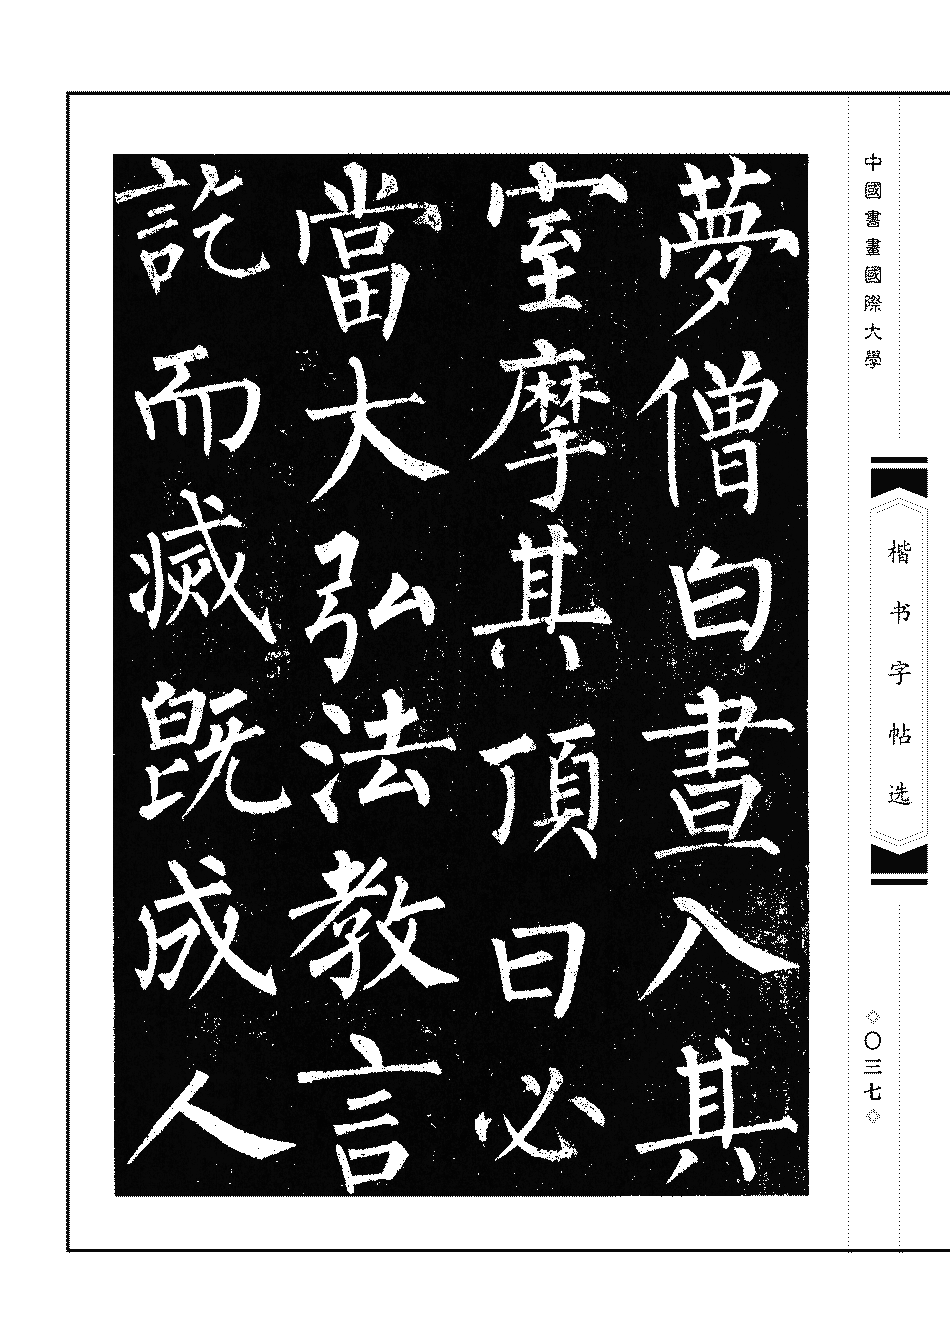 中國書畫國際大學
楷书字帖选
〇三七
夢僧白晝入其
室摩其頂曰必
當大弘法教言
訖而滅既成人